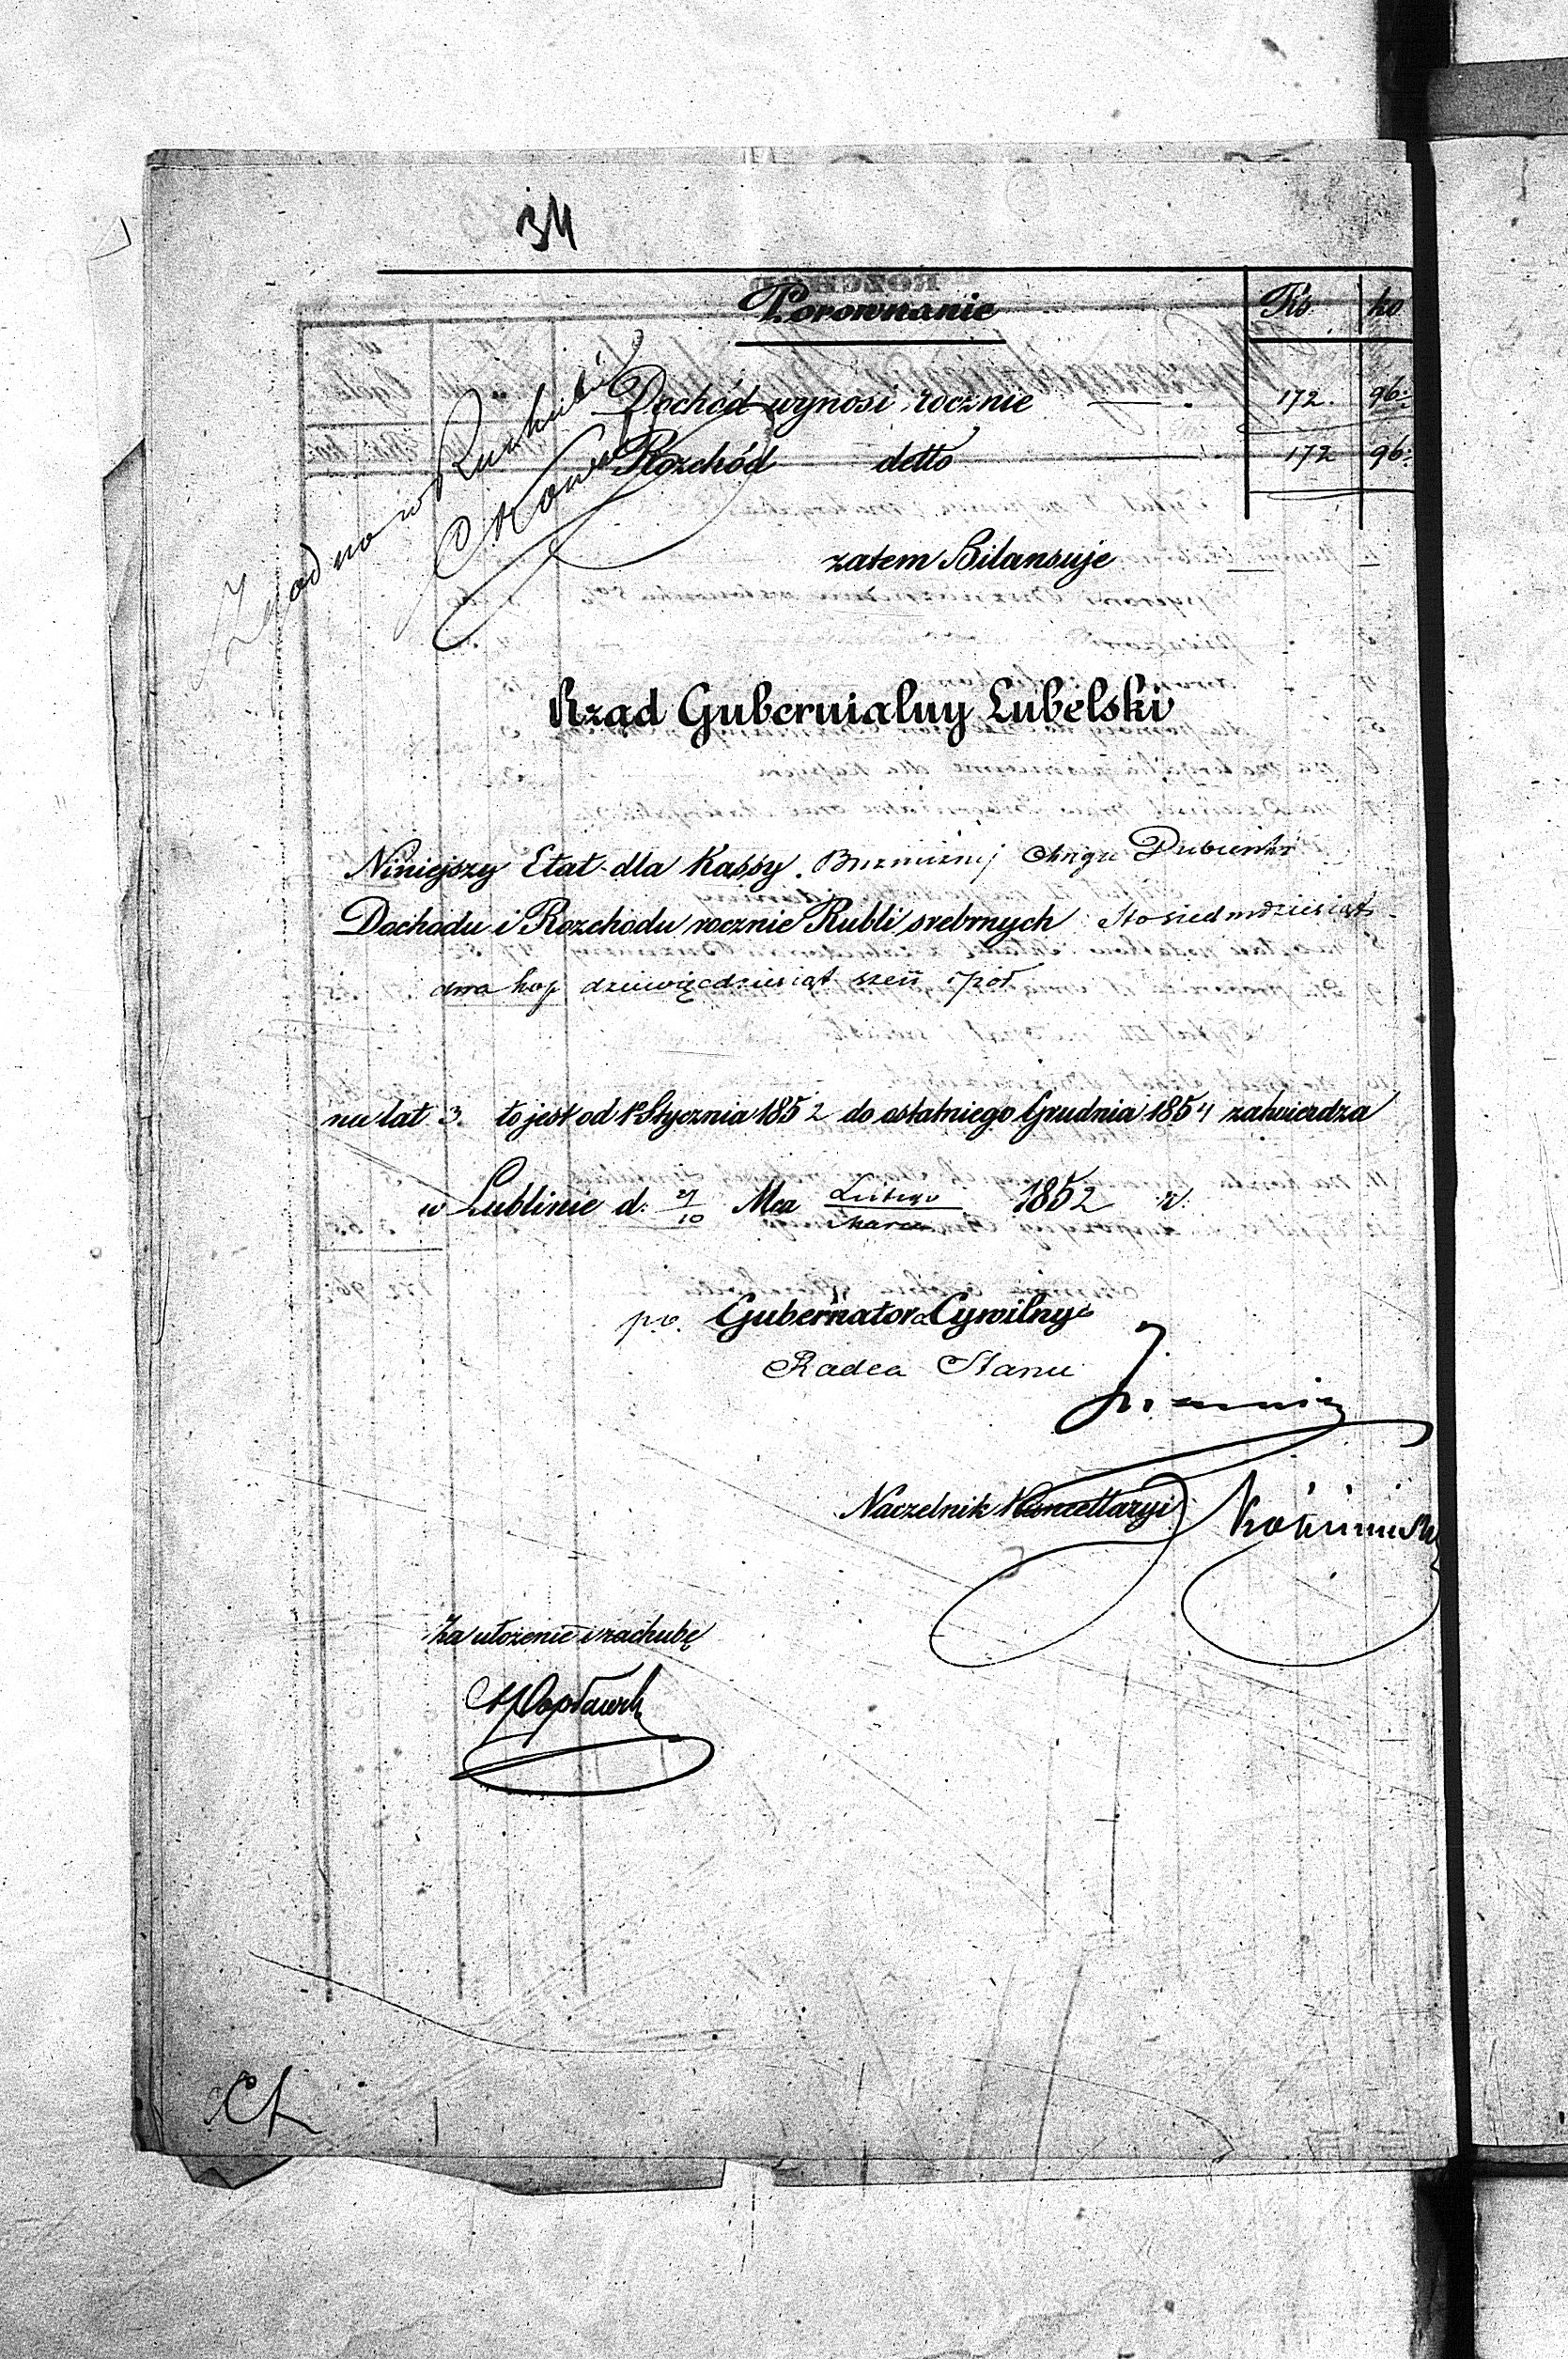 34
Porownanie Rs ko
Dochód wynosi rocznie 172. 96:
Rozchód detto 172 96:
Zgodno w Rachubie
zatem Bilansuje
Rząd Gubernialny Lubelski
Niniejszy Etat dla Kassy Bużnicznej Okręgu Dubienka
Dochodu i Rozchodu rocznie Rubli srebrnych sto siedmdziesiąt
dwa kop dziewięcdziesiąt sześć i pół
na lat 3. to jest od 1º Stycznia 1852 do ostatniego Grudnia 1854 zatwierdza
w Lublinie d: 27/10 Mca Lutego/Marca 1852 r:
p.o. Gubernatora Cywilnego
Radca Stanu
Naczelnik Kancellaryi
Za ułożenie i rachubę